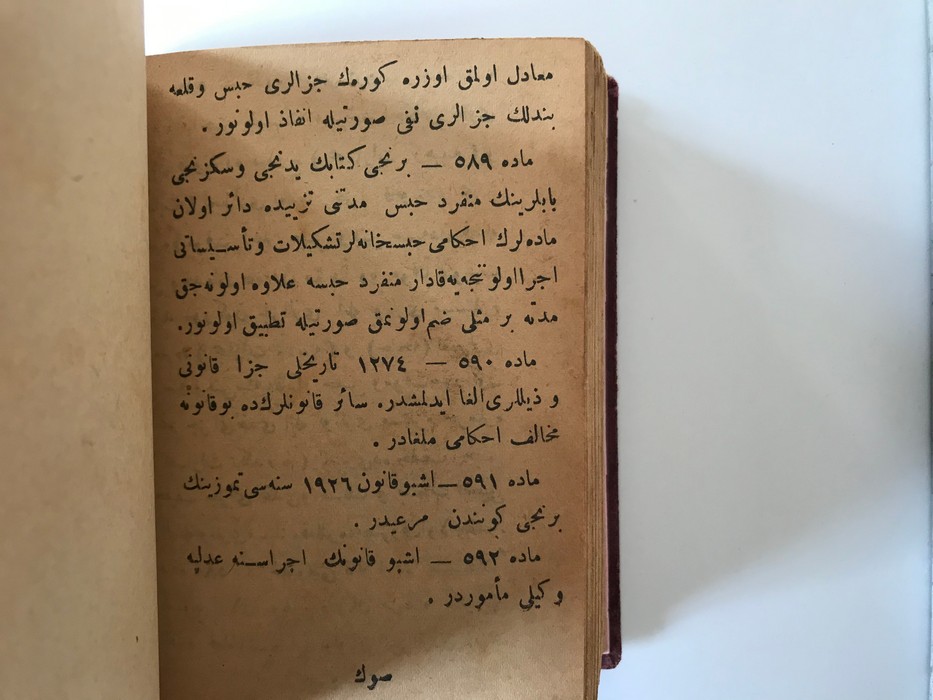 معادل اولمق اوزره كورەك جزالرى حبس وقلعه
بندلك جزالرى نفى صورتيله انفاذ اولونور .
ماده ٥٨٩ — برنجى كتابك يدنجى وسكزنجى
بابلرينك منفرد حبس مدتنى تزييده دائر اولان
ماده‌لرك احكامى حبسخانه‌لر تشكيلات وتأسيساتى
اجرا اولوننجه‌يه‌قادار منفرد حبسه علاوه اولونه‌جق
مدته بر مثلى ضم اولونمق صورتيله تطبيق اولونور.
ماده ٥٩٠ — ١٢٧٤ تاريخلى جزا قانونى
و ذيللرى الغا ايدلمشدر. سائر قانونلرك‌ده بوقانونه
مخالف احكامى ملغادر .
ماده ٥٩١ — اشبو قانون ١٩٢٦ سنه‌سى تموزينك
برنجى كونندن مرعيدر .
ماده ٥٩٢ — اشبو قانونك اجراسنه عدليه
وكيلى مأموردر .
صوك